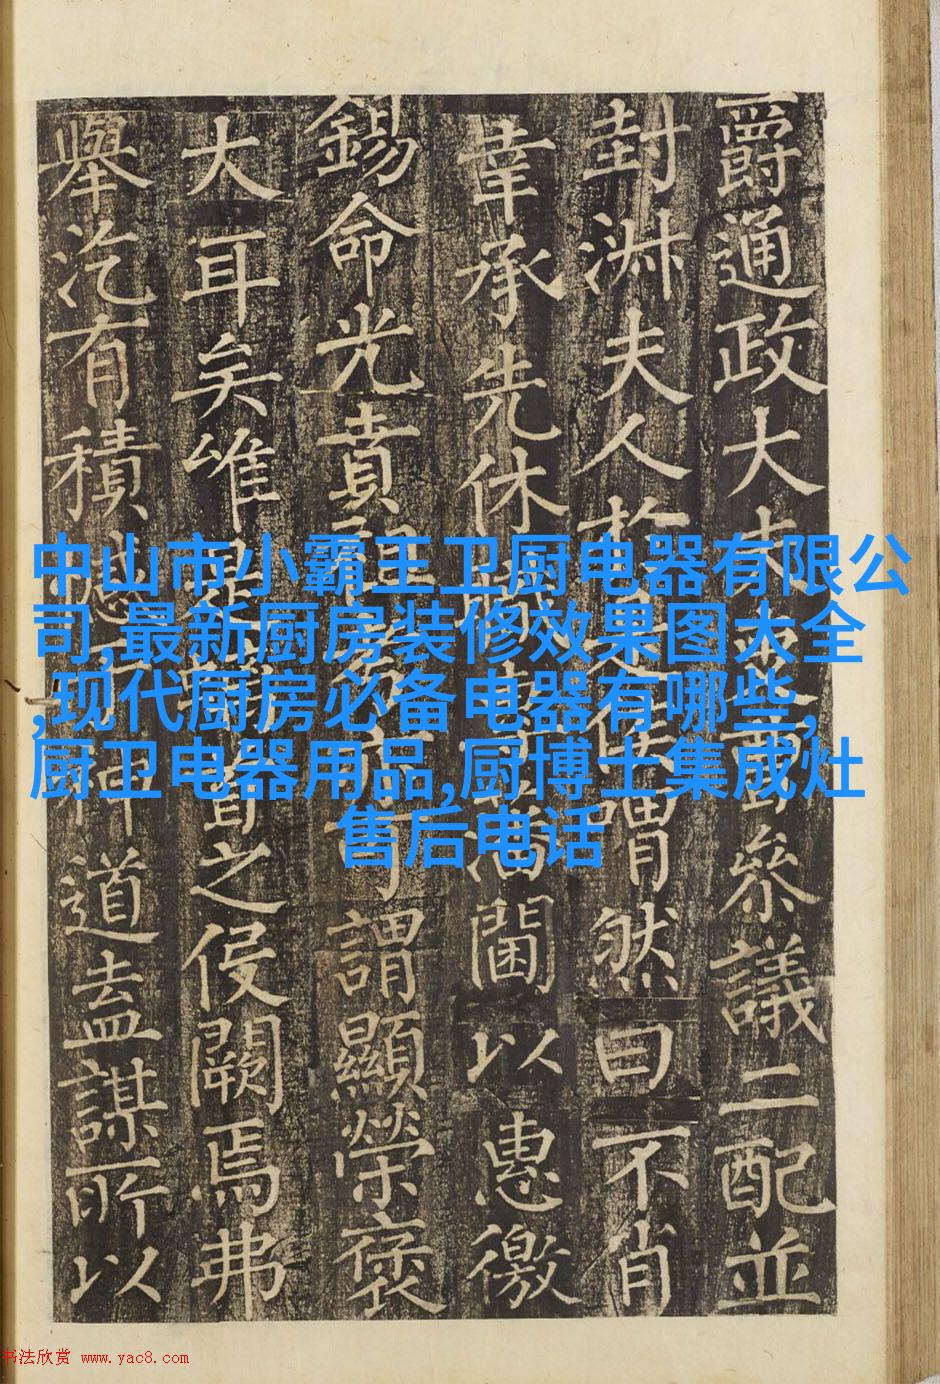 爵通政大夫參議二配並
封淑夫人於謂然曰不肖
幸承先休藩閫以惠徼
錫命光賁可謂顯榮褒
大耳矣唯之侵闕焉弗
舉汔有積道盍謀所以
中山市小霸王卫厨电器有限公
司,最新厨房装修效果图大全
,现代厨房必备电器有哪些,
厨卫电器用品,厨博士集成灶
售后电话
书法欣赏 www.yac8.com